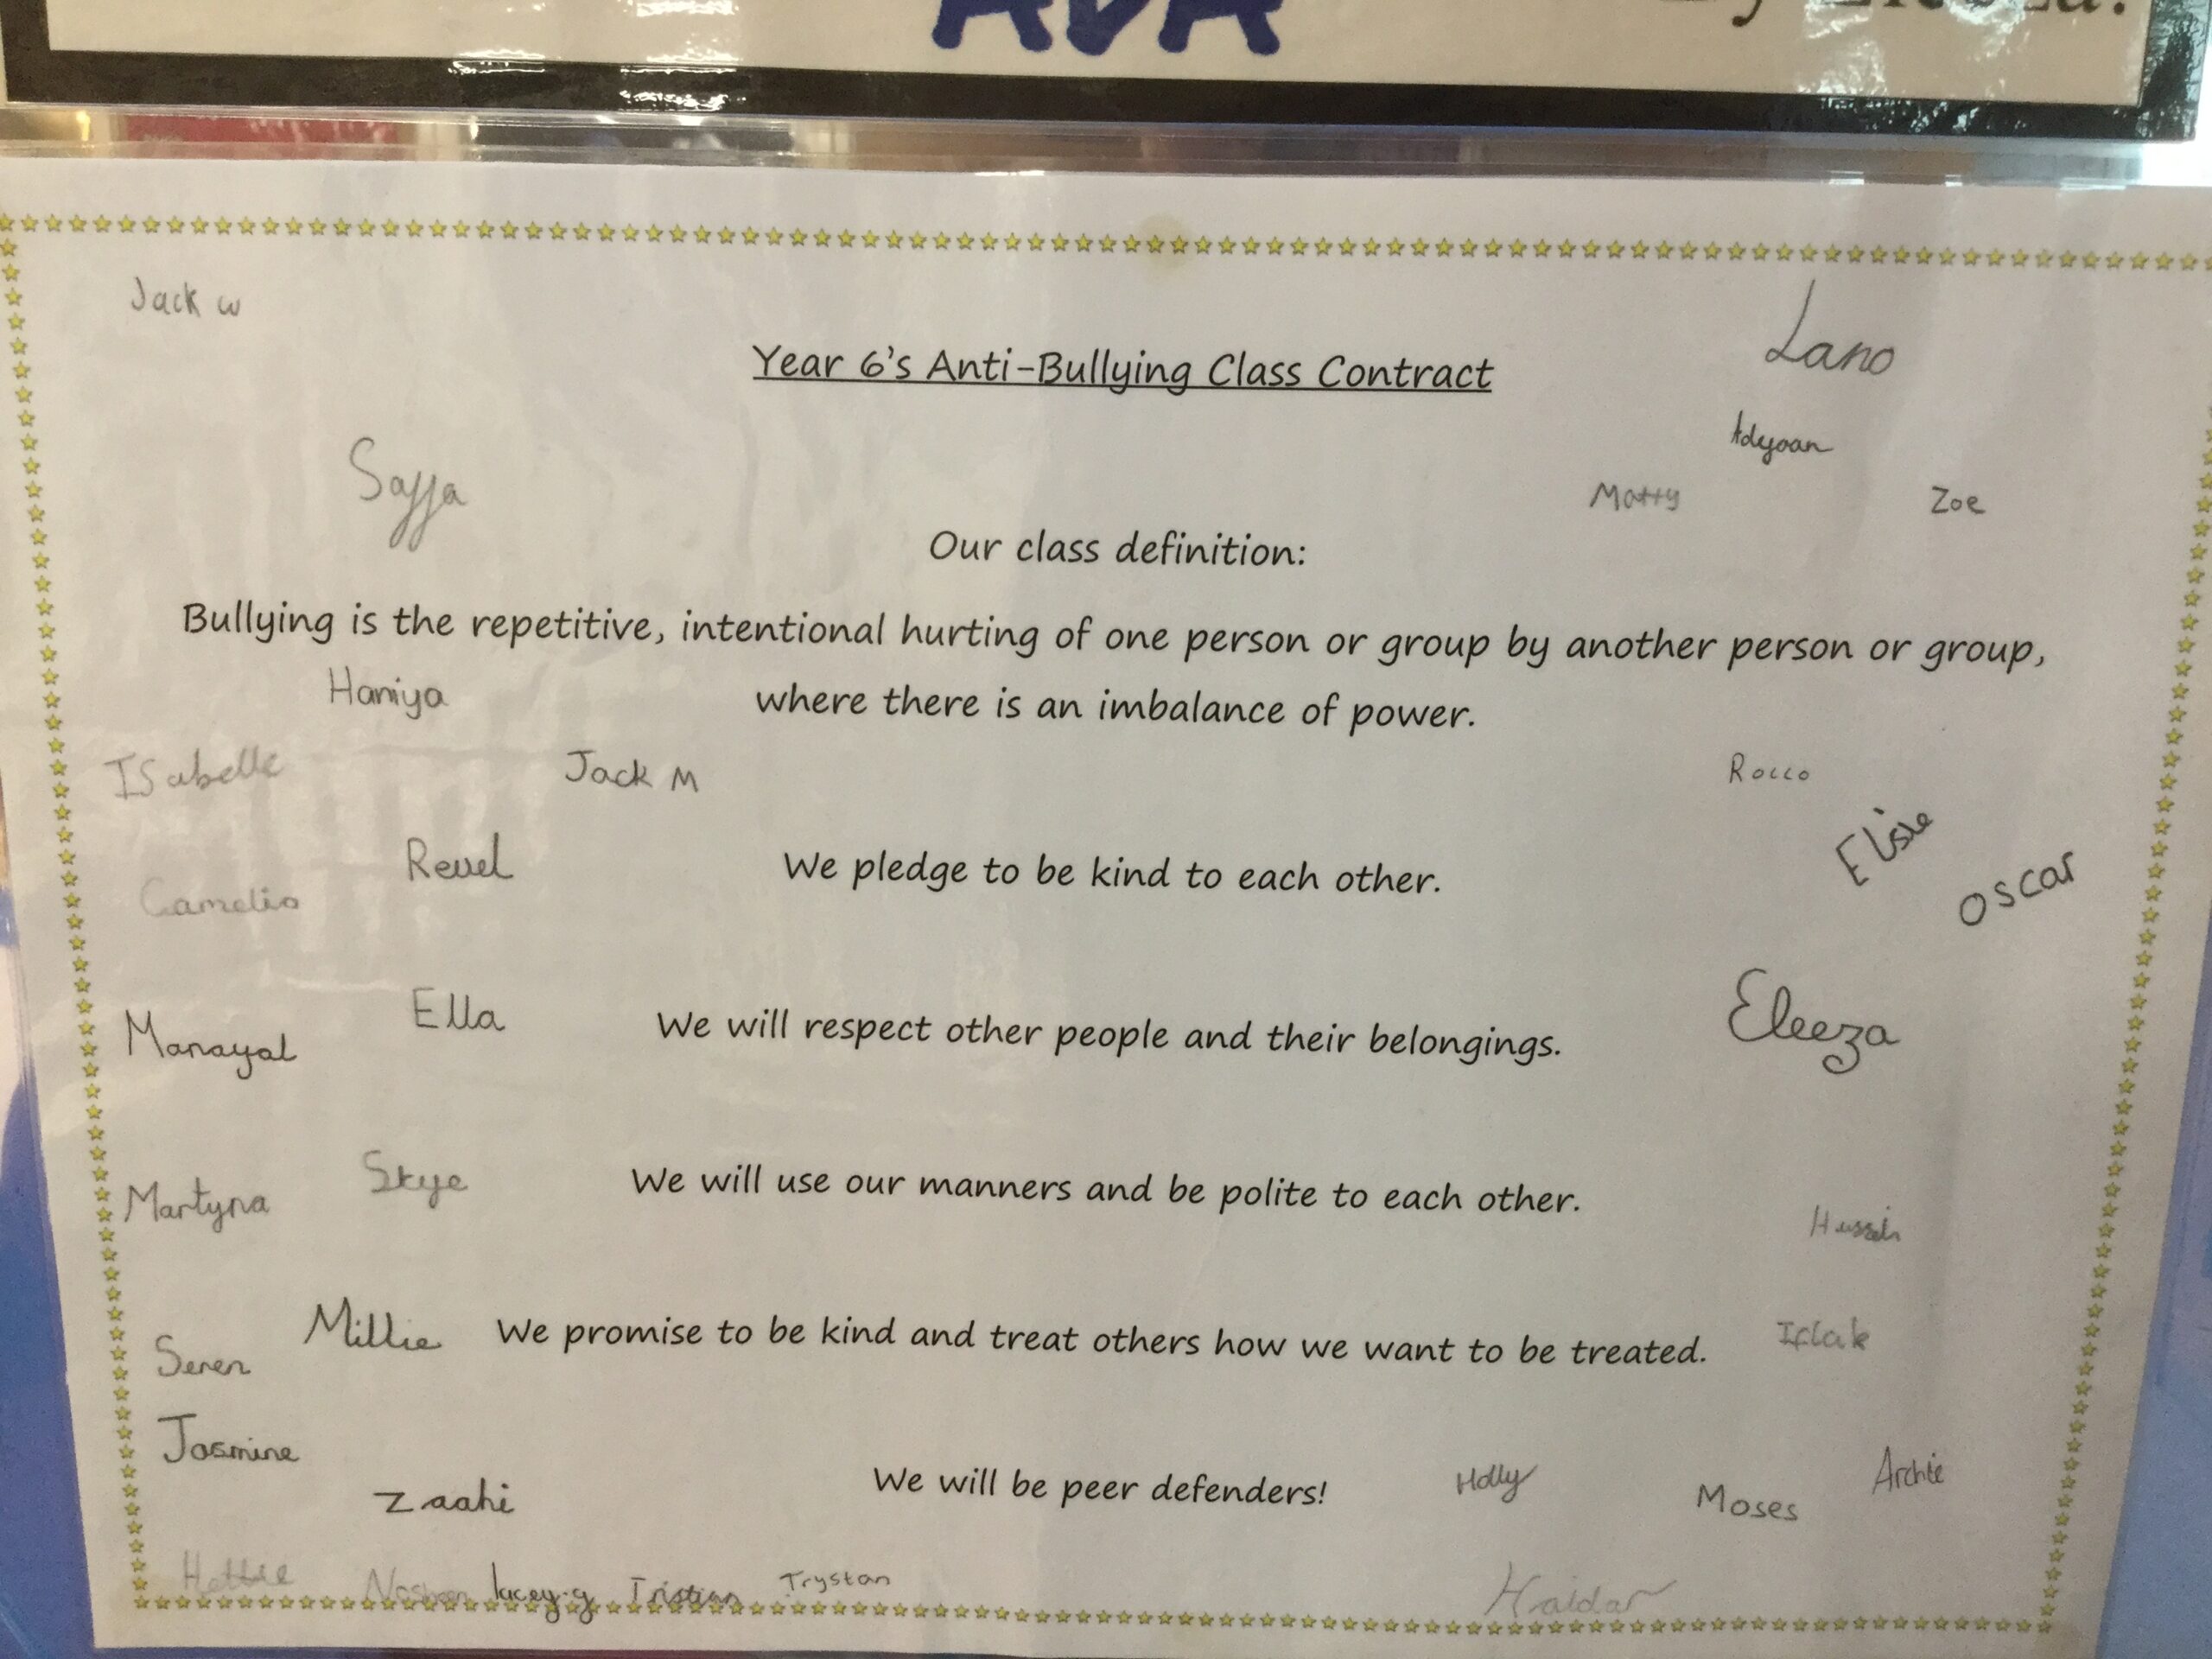 AVA
Jack W
Lano
Year 6's Anti-Bullying Class Contract
Adyaan
Sajja
Matty
Zoe
Our class definition:
Bullying is the repetitive, intentional hurting of one person or group by another person or group,
Haniya
where there is an imbalance of power.
ISabelle
Jack M
Rocco
Elsie
Reuel
We pledge to be kind to each other.
Oscar
Ella
Eleeza
Manayal
We will respect other people and their belongings.
Skye
Martyna
We will use our manners and be polite to each other.
Millie
We promise to be kind and treat others how we want to be treated.
Seren
Jasmine
Holly
Archie
Zaahi
We will be peer defenders!
Moses
Hattie
lacey.g
Tristian
Trystan
Haidar